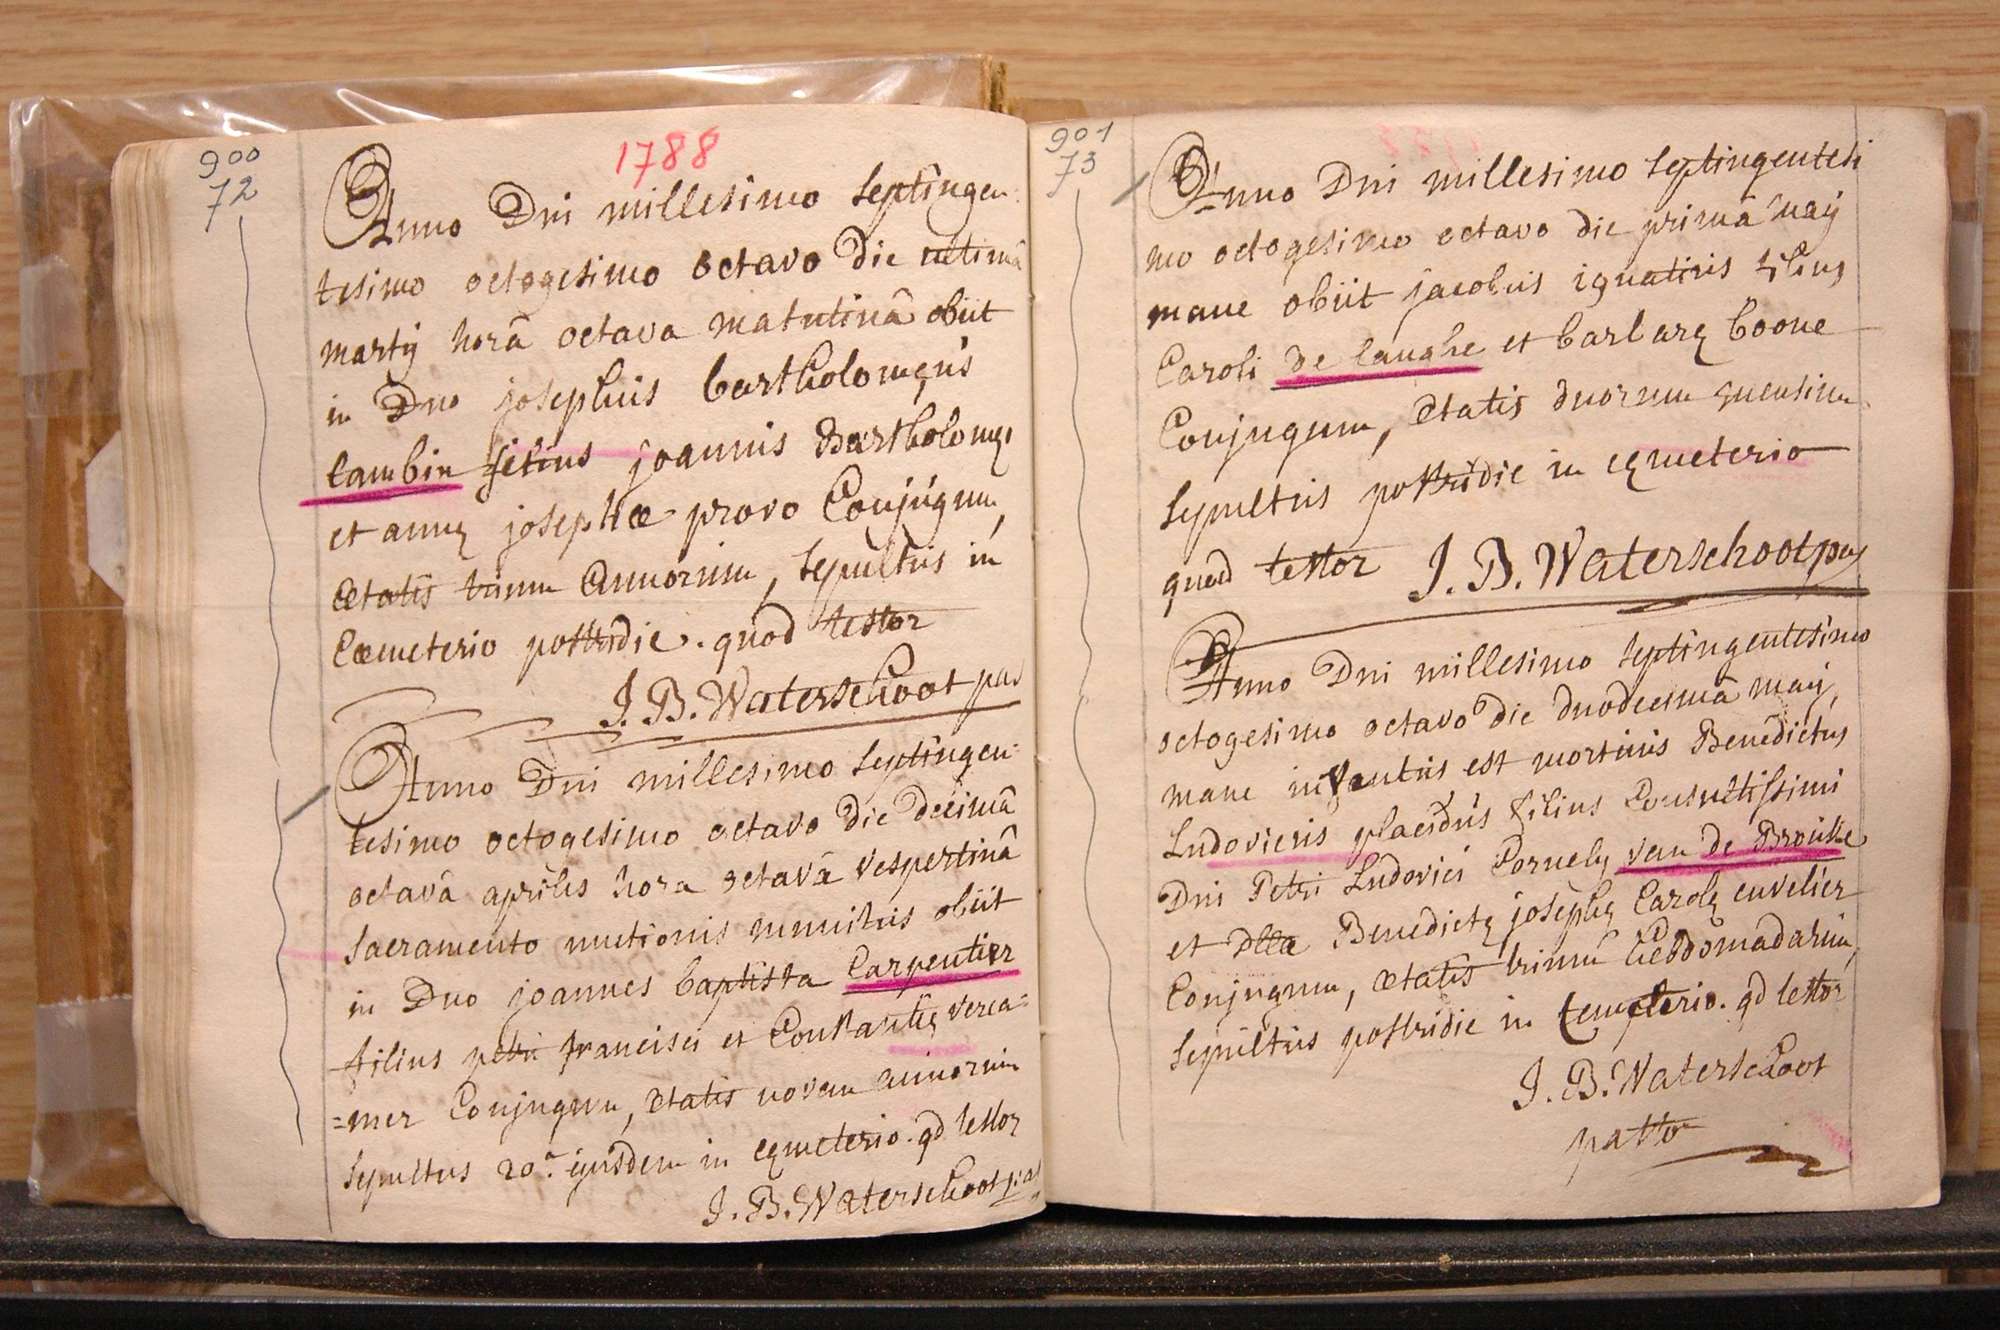 900
72
1788
Anno Dni millesimo septingen:
tesimo octogesimo octavo die ultimâ
martij horâ octava matutinâ obiit
in Dno josephus bartholomęus
lambin filius joannis Bartholomęi
et annę josephæ provo Conjugum,
ætatis trium annorum, sepultus in
Cœmeterio postridie. quod testor
J. B. Waterschoot pas
Anno Dni millesimo septingen:
tesimo octogesimo octavo die decimâ
octavâ aprilis hora octavâ vespertinâ
sacramento unctionis munitus obiit
in Dno joannes baptista Carpentier
filius petri francisci et Constantię verca=
=mer Conjugum, ętatis novem annorum
sepultus 20.ª ejusdem in cęmeterio. qd testor
J. B. Waterschoot pas
901
73
Anno Dni millesimo septingentesi
mo octogesimo octavo die primâ maij
mane obiit jacobus ignatius filius
Caroli de langhe et barbarę boone
Conjugum, ætatis duorum mensium
sepultus postridie in cęmeterio
quod testor J. B. Waterschoot pas
Anno Dni millesimo septingentesimo
octogesimo octavo die duodecimâ maij,
mane inventus est mortuus Benedictus
Ludovicus placidus filius Consultissimi
Dni Petri Ludovici Cornely van de Broucke
et Dllæ Benedictę josephę Carolę cuvelier
Conjugum, ætatis trium hebdomadarum,
sepultus postridie in cemęterio. qd testor
J. B. Waterschoot
pastor